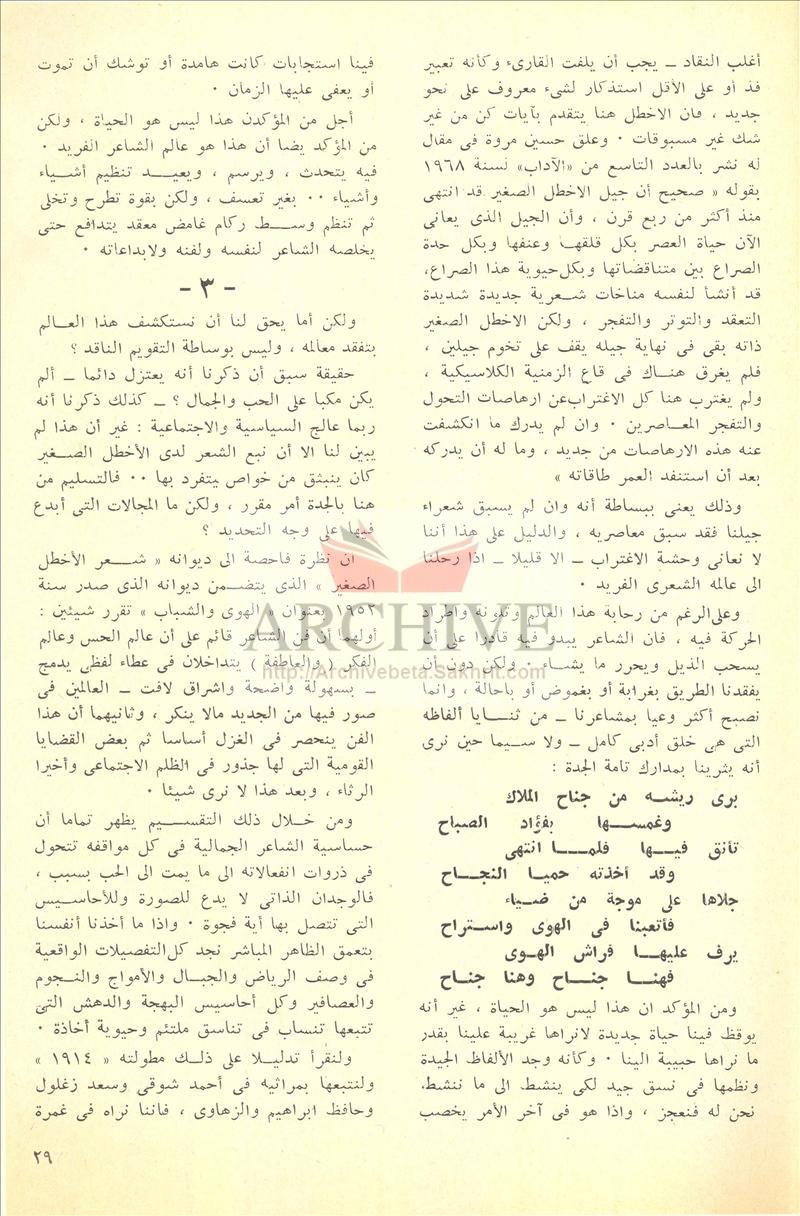 أغلب النقاد ــ يجب أن يلفت القارىء وكأنه تعبير
فذ أو على الأقل استذكار لشىء معروف على نحو
جديد ، فان الاخطل هنا يتقدم بآيات كن من غير
شك غير مسبوقات ٠ وعلق حسين مروة فى مقال
له نشر بالعدد التاسع من «الآداب» لسنة ١٩٦٨
بقوله « صحيح أن جيل الاخطل الصغير قد انتهى
منذ أكثر من ربع قرن ، وأن الجيل الذى يعانى
الآن حياة العصر بكل قلقها وعنفها وبكل حدة
الصراع بين متناقضاتها وبكل حيوية هذا الصراع،
قد أنشأ لنفسه مناخات شعرية جديدة شديدة
التعقد والتوتر والتفجر ، ولكن الاخطل الصغير
ذاته بقى فى نهاية جيله يقف على تخوم جيلين ،
فلم يغرق هناك فى قاع الزمنية الكلاسيكية ،
ولم يغترب هنا كل الاغتراب عن ارهاصات التحول
والتفجر المعاصرين ٠ وان لم يدرك ما انكشفت
عنه هذه الارهاصات من جديد ، وما له أن يدركه
بعد أن استنفد العمر طاقاته »
وذلك يعنى ببساطة أنه وان لم يسبق شعراء
جيلنا فقد سبق معاصريه ، والدليل على هذا أننا
لا نعانى وحشة الاغتراب ــ الا قليلا ــ اذا رحلنا
الى عالمه الشعرى الفريد ٠
وعلى الرغم من رحابة هذا العالم وتلونه واطراد
الحركة فيه ، فان الشاعر يبدو فيه قادرا على أن
يسحب الذيل ويحرر ما يشاء ٠ ولكن دون أن
يفقدنا الطريق بغرابة أو بغموض أو باحالة ، وانما
نصبح أكثر وعيا بمشاعرنا ــ من ثنايا ألفاظه
التى هى خلق أدبى كامل ــ ولا سيما حين نرى
أنه يثرينا بمدارك تامة الجدة :
برى ريشه من جناح الملاك
وغمسها بفؤاد الصباح
تأنق فيها فلما انتهى
وقد أخذته حميا النجاح
جلاها على موجة من ضياء
فأتعبنا فى الهوى واستراح
يرف عليها فراش الهوى
فهنا جناح وهنا جناح
ومن المؤكد ان هذا ليس هو الحياة ، غير أنه
يوقظ فينا حياة جديدة لانراها غريبة علينا بقدر
ما نراها حبيبة الينا ٠ وكأنه وجد الألفاظ الجيدة
ونظمها فى نسق جيد لكى ينشط الى ما ننشط
نحن له فنعجز ، واذا هو فى آخر الأمر يخصب
فينا استجابات كانت هامدة أو توشك أن تموت
أو يعفى عليها الزمان ٠
أجل من المؤكدن هذا ليس هو الحياة ، ولكن
من المؤكد يضا أن هذا هو عالم الشاعر الفريد ٠
فيه يتحدث ، ويرسم ، ويعيد تنظيم أشياء
وأشياء ٠٠ بغير تعسف ، ولكن بقوة تطرح وتخلى
ثم تنظم وسط ركام غامض معقد يتدافع حتى
يخلصه الشاعر لنفسه ولفنه ولابداعاته ٠
- ٣ -
ولكن أما يحق لنا أن نستكشف هذا العالم
بتفقد معالمه ، وليس بوساطة التقويم الناقد ؟
حقيقة سبق أن ذكرنا أنه يعتزل دائما ــ ألم
يكن مكبا على الحب والجمال ؟ ــ كذلك ذكرنا أنه
ربما عالج السياسية والاجتماعية : غير أن هذا لم
يبين لنا الا أن نبع الشعر لدى الأخطل الصغير
كان ينبثق من خواص يتفرد بها ٠٠ فالتسليم من
هنا بالجدة أمر مقرر ، ولكن ما المجالات التى أبدع
فيها على وجه التحديد ؟
ان نظرة فاحصة الى ديوانه « شعر الأخطل
الصغير » الذى يتضمن ديوانه الذى صدر سنة
١٩٥٢ بعنوان « الهوى والشباب » تقرر شيئين :
أولهما أن فن الشاعر قائم على أن عالم الحس وعالم
الفكر ( والعاطفة ) يتداخلان فى عطاء لفظى يدمج
ــ بسهولة واضحة واشراق لافت ــ العالمين فى
صور فيها من الجديد مالا ينكر ، وثانيهما أن هذا
الفن ينحصر فى الغزل أساسا ثم بعض القضايا
القومية التى لها جذور فى الظلم الاجتماعى وأخيرا
الرثاء ، وبعد هذا لا نرى شيئا ٠
ومن خلال ذلك التقسيم يظهر تماما أن
حساسية الشاعر الجمالية فى كل مواقفه تتحول
فى ذروات انفعالاته الى ما يمت الى الحب بسبب ،
فالوجدان الذاتى لا يدع للصورة وللأحاسيس
التى تتصل بها أية فجوة ٠ واذا ما أخذنا أنفسنا
بتعمق الظاهر المباشر نجد كل التفصيلات الواقعية
فى وصف الرياض والجبال والأمواج والنجوم
والعصافير وكل أحاسيس البهجة والدهش التى
تتبعها تنساب فى تناسق ملتئم وحيوية أخاذة ٠
ولنقرأ تدليلا على ذلك مطولته « ١٩١٤ »
ولنتبعها بمراثيه فى أحمد شوقى وسعد زغلول
وحافظ ابراهيم والزهاوى ، فاننا نراه فى غمرة
٢٩
ARCHIVE
http://Archivebeta.Sakhrit.com